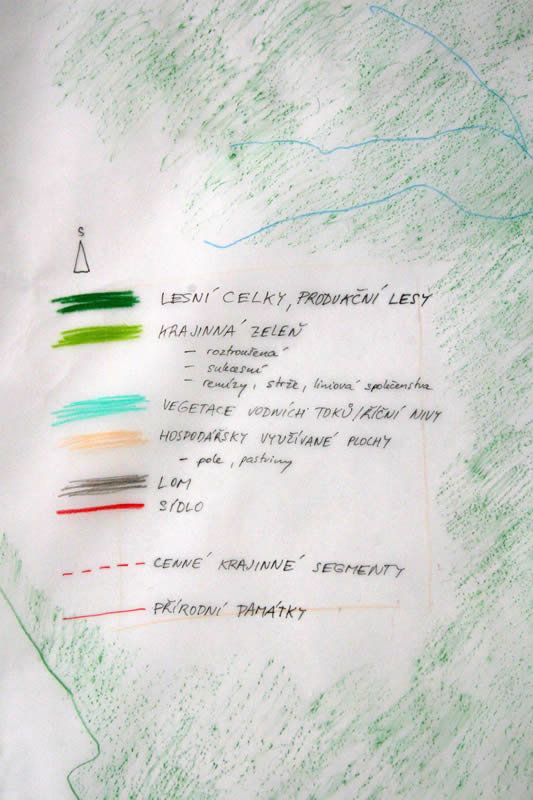 S
LESNÍ CELKY, PRODUKČNÍ LESY
KRAJINNÁ ZELEŇ
– roztroušená
– sukcesní
– remízy, strže, liniová společenstva
VEGETACE VODNÍCH TOKŮ/ŘÍČNÍ NIVY
HOSPODÁŘSKY VYUŽÍVANÉ PLOCHY
– pole, pastviny
LOM
SÍDLO
CENNÉ KRAJINNÉ SEGMENTY
PŘÍRODNÍ PAMÁTKY